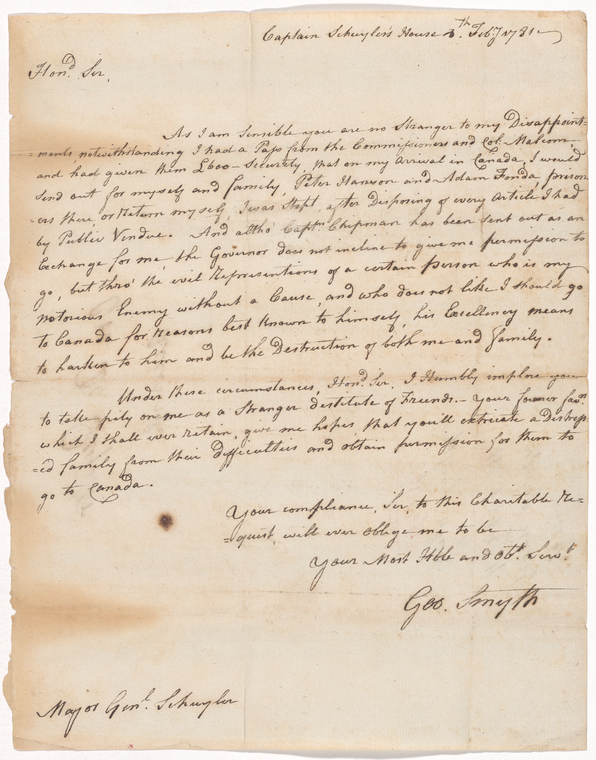 Captain Schuyler's House 8th Feby 1781
Hond Sir,
As I am Sensible you are no Stranger to my Disappoint=
=ments notwithstanding I had a Pass from the Commissioners and Col. Malcom,
and had given them £600 Security, that on my Arrival in Canada, I would
Send out for myself and family, Peter Hanson and Adam Fonda prison
ers there, or return myself, I was Stopt after Disposing of every Article I had
by Public Vendue. And altho' Captn Chipman has been sent out as an
Exchange for me, the Governor does not incline to give me permission to
go, but thro' the evil Representions of a certain Person who is my
notorious Enemy without a Cause, and who does not like I should go
to Canada for Reasons best known to himself, his Excellency means
to harken to him and be the Destruction of both me and family.
Under these circumstances, Hond Sir, I Humbly implore you
to take pity on me as a Stranger destitute of Freends. Your former favrs
which I shall ever retain, give me hopes, that you'll extricate a Distress
=ed family from their Difficulties and obtain permission for them to
go to Canada.
Your compliance, Sir, to this Charitable Re=
=quest, will ever oblige me to be
Your Most Hble and Obt Servt
Geo. Smyth
Major Genl Schuyler